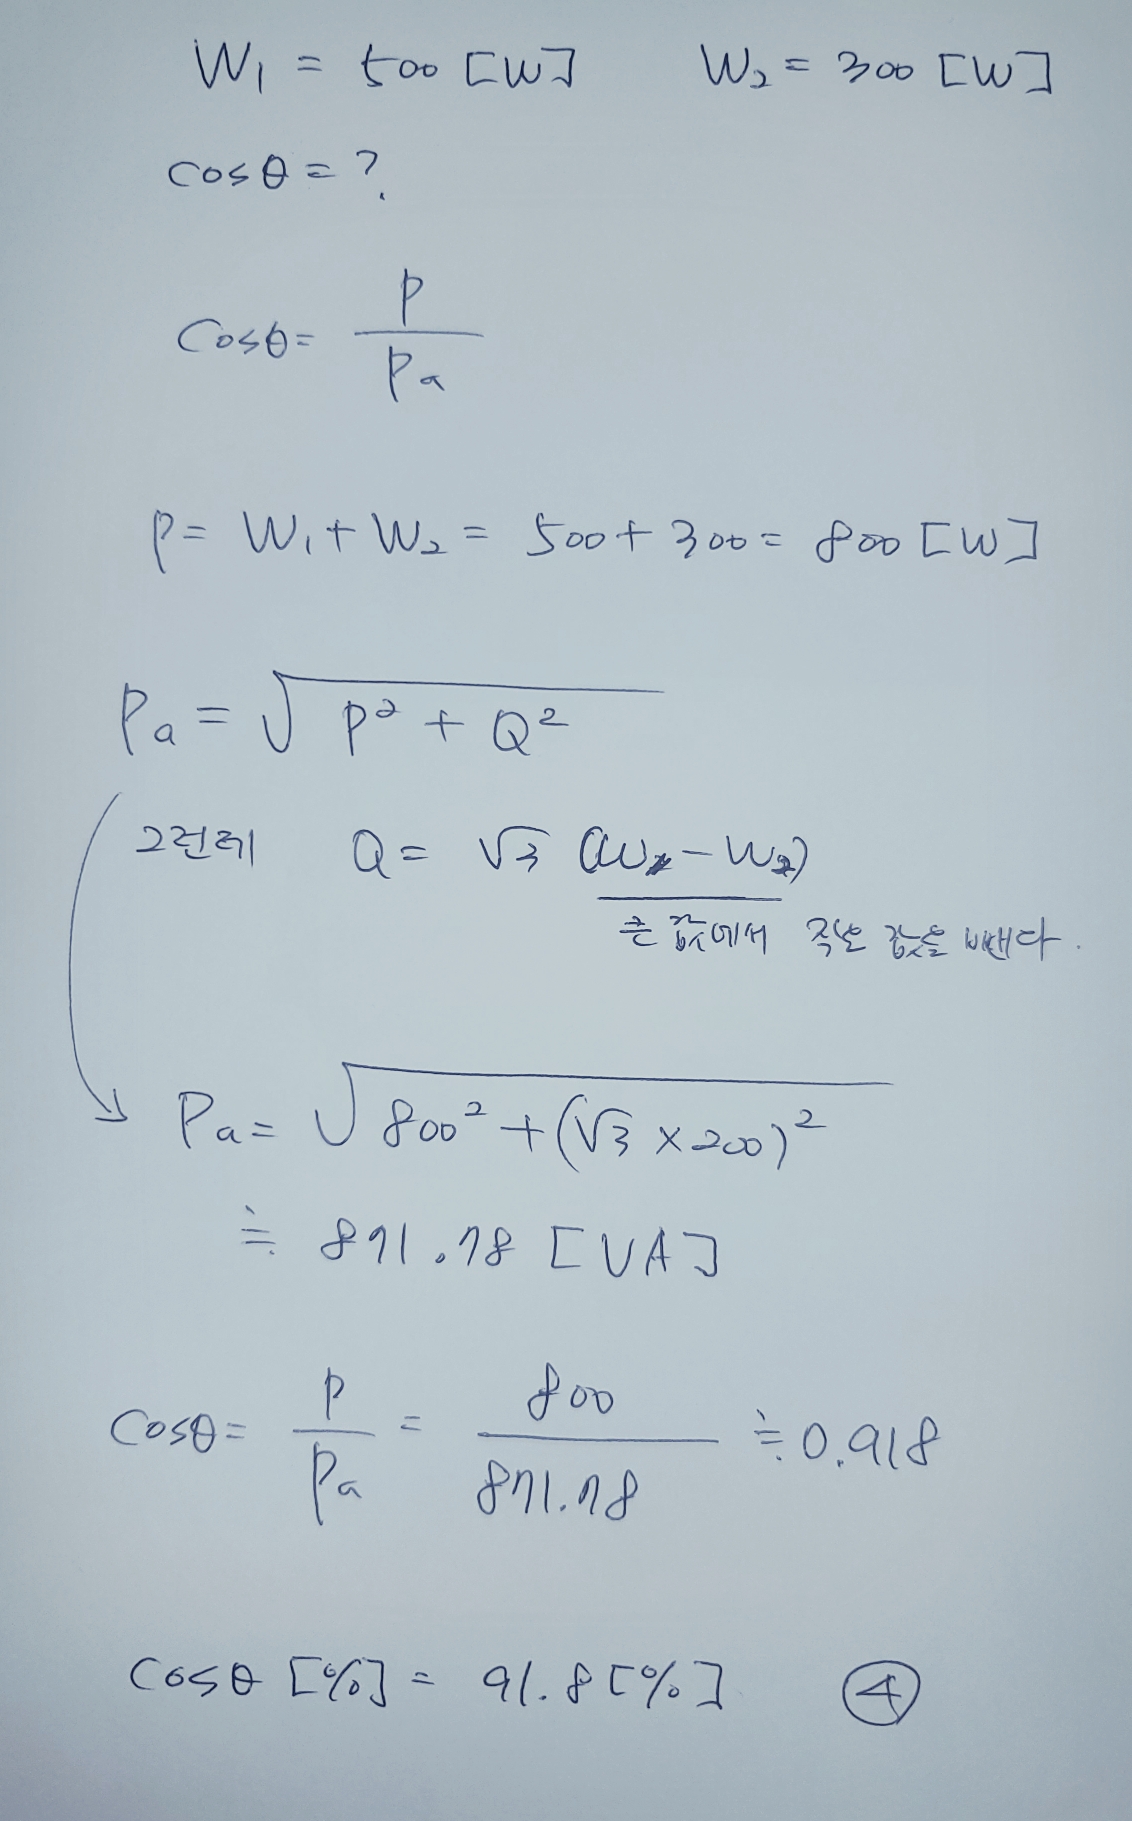 W₁ = 500 [W] W₂ = 300 [W]
cosθ = ?
Cosθ = P / Pa
P = W₁ + W₂ = 500 + 300 = 800 [W]
Pa = √(P² + Q²)
그런데 Q = √3 (W₁ - W₂)
큰 값에서 작은 값을 뺀다.
Pa = √(800² + (√3 × 200)²)
≒ 871.78 [VA]
Cosθ = P / Pa = 800 / 871.78 ≒ 0.918
Cosθ [%] = 91.8 [%] ④